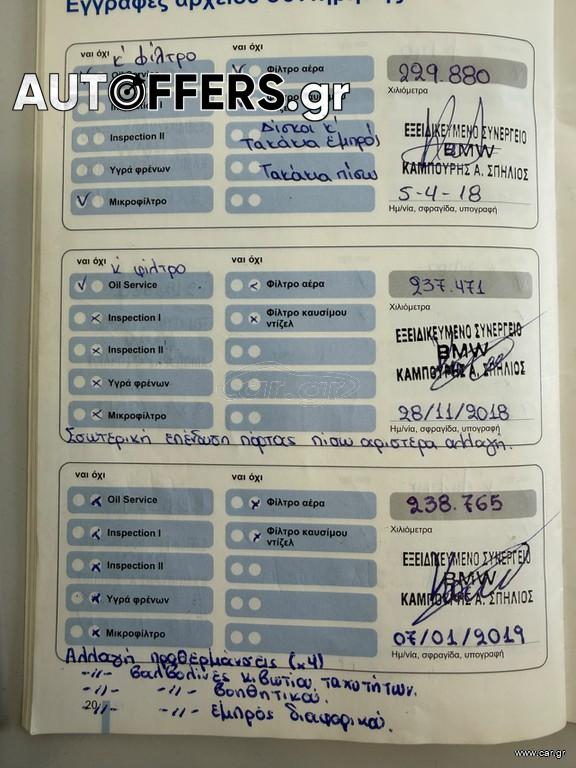 Εγγραφές αρχείου συντήρησης
ναι όχι
κ' φίλτρο
ναι όχι
Φίλτρο αέρα
229.880
Χιλιόμετρα
AUTOFFERS.gr
Inspection II
Δίσκοι κ'
τακάκια εμπρός
ΕΞΕΙΔΙΚΕΥΜΕΝΟ ΣΥΝΕΡΓΕΙΟ
BMW
ΚΑΜΠΟΥΡΗΣ Α. ΣΠΗΛΙΟΣ
Υγρά φρένων
Τακάκια πίσω
5-4-18
Μικροφίλτρο
Ημ/νία, σφραγίδα, υπογραφή
ναι όχι
κ' φίλτρο
ναι όχι
Oil Service
Φίλτρο αέρα
237.471
Χιλιόμετρα
Inspection I
Φίλτρο καυσίμου
ντίζελ
ΕΞΕΙΔΙΚΕΥΜΕΝΟ ΣΥΝΕΡΓΕΙΟ
BMW
ΚΑΜΠΟΥΡΗΣ Α. ΣΠΗΛΙΟΣ
Inspection II
Υγρά φρένων
car.gr
Μικροφίλτρο
28/11/2018
Ημ/νία, σφραγίδα, υπογραφή
Εσωτερική επένδυση πόρτας πίσω αριστερά αλλαγή.
ναι όχι
ναι όχι
Oil Service
Φίλτρο αέρα
238.765
Χιλιόμετρα
Inspection I
Φίλτρο καυσίμου
ντίζελ
ΕΞΕΙΔΙΚΕΥΜΕΝΟ ΣΥΝΕΡΓΕΙΟ
BMW
ΚΑΜΠΟΥΡΗΣ Α. ΣΠΗΛΙΟΣ
Inspection II
Υγρά φρένων
Μικροφίλτρο
07/01/2019
Ημ/νία, σφραγίδα, υπογραφή
Αλλαγή προθερμάνσεις (x4)
-//- βαλβολίνες κιβωτίου ταχυτήτων.
-//- -//- βοηθητικού.
-//- -//- εμπρός διαφορικού.
20
www.car.gr